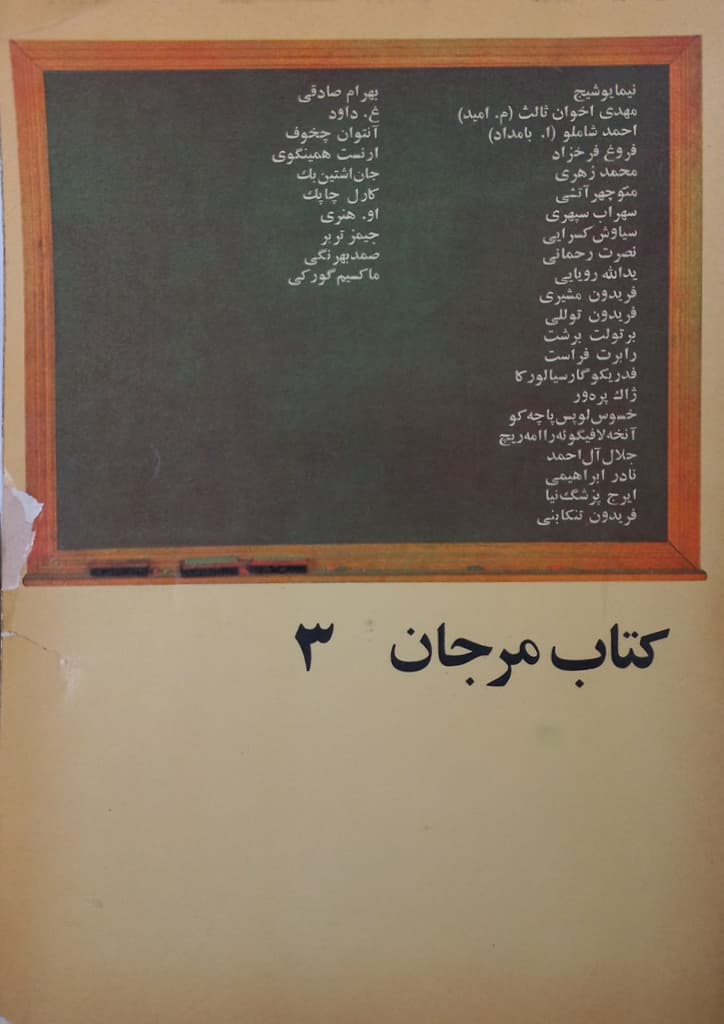 نیمایوشیج
مهدی اخوان ثالث (م. امید)
احمد شاملو (ا. بامداد)
فروغ فرخزاد
محمد زهری
منوچهر آتشی
سهراب سپهری
سیاوش کسرایی
نصرت رحمانی
یدالله رویایی
فریدون مشیری
فریدون توللی
برتولت برشت
رابرت فراست
فدریکو گارسیا لورکا
ژاک پره‌ور
خسوس لوپس پاچه کو
آنخه لافیگونه را امه ریچ
جلال آل احمد
نادر ابراهیمی
ایرج پزشگ نیا
فریدون تنکابنی
بهرام صادقی
غ. داود
آنتوان چخوف
ارنست همینگوی
جان اشتین بک
کارل چاپک
او. هنری
جیمز تربر
صمد بهرنگی
ماکسیم گورکی
کتاب مرجان ۳